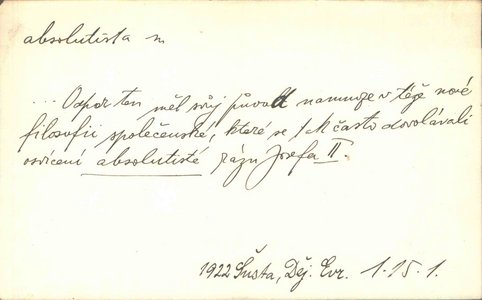 absolutista m.
... Odpor ten měl svůj původ namnoze v téže nové
filosofii společenské, které se tak často dovolávali
osvícení absolutisté rázu Josefa II.
1922 Šusta, Děj. Evr. 1.15.1.